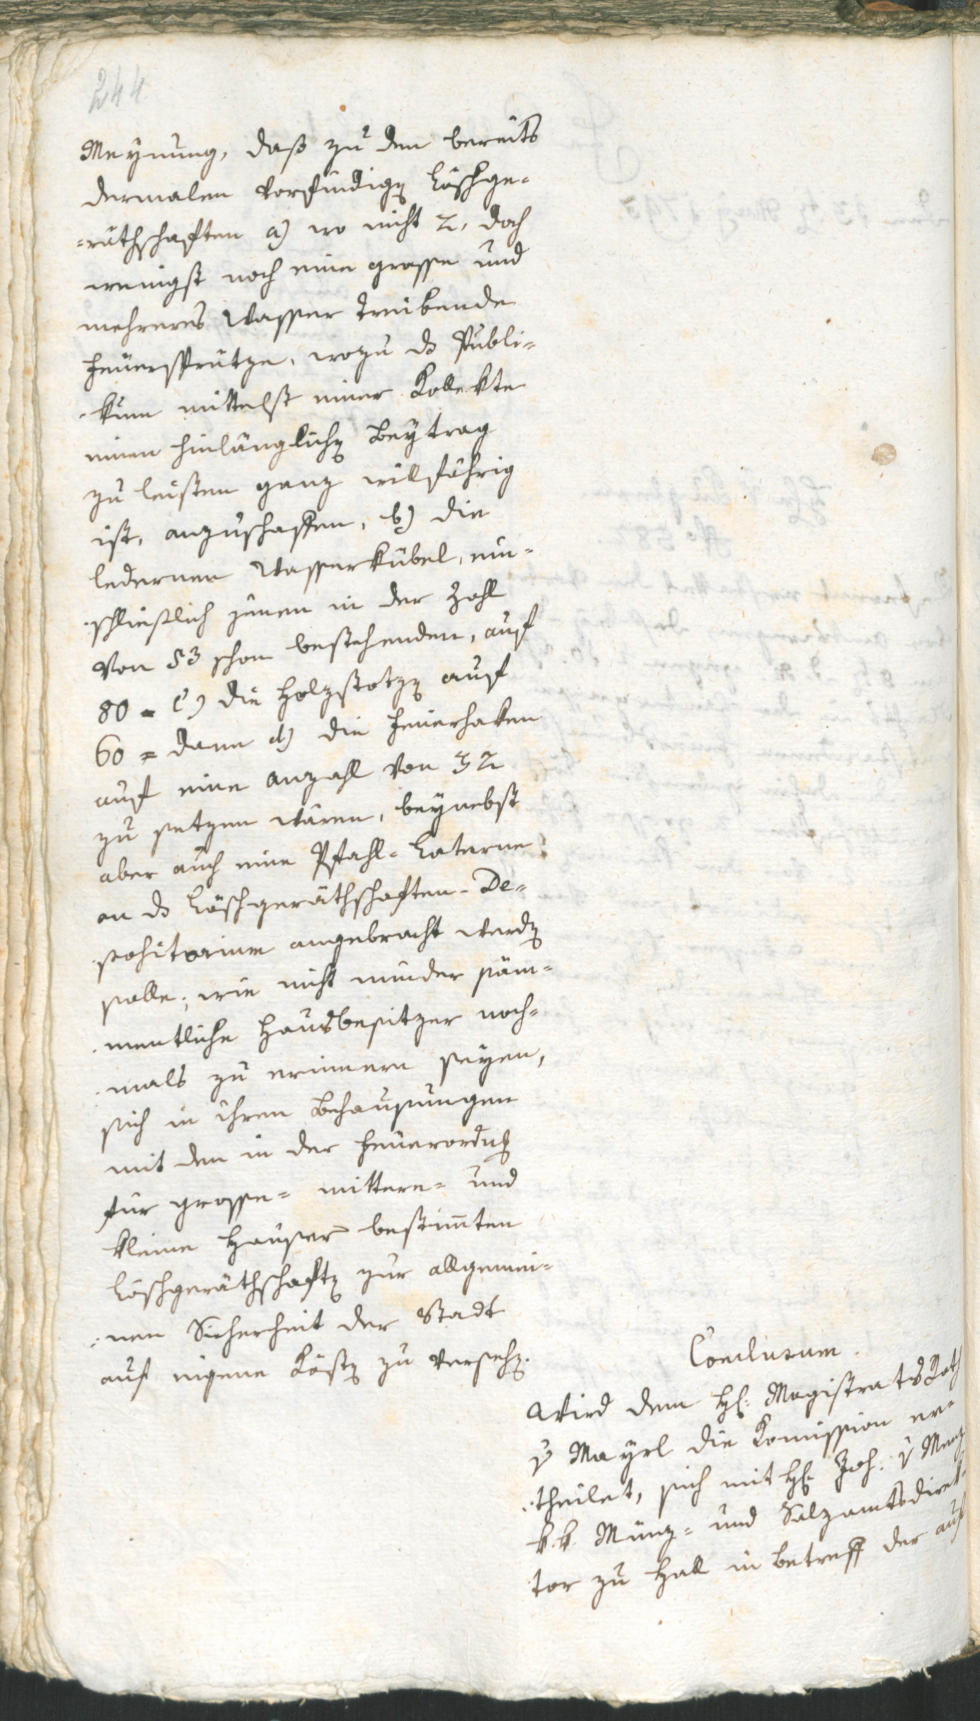 244
Meynung, daß zu den bereits
dermalen vorfindigen Löschge-
-räthschaften a) wo nicht 2, doch
wenigst noch eine grosse und
mehreres Wasser treibende
Feuersprütze, wozu das Publi-
-kum mittelst einer Kollekte
einen hinlänglichen Beytrag
zu leisten ganz willfährig
ist, anzuschaffen, b) die
ledernen Wasserkübel, ein-
-schließlich jenen in der Zahl
von 53 schon bestehenden, auf
80 = c) die Holzstotzen auf
60 = dann d) die Feuerhaken
auf eine Anzahl von 32
zu setzen wären, beynebst
aber auch eine Pfahl-Laterne
an das Löschgeräthschaften-De-
-positorium angebracht werden
solle; wie nicht minder säm-
-mentliche Hausbesitzer noch-
-mals zu erinnern seyen,
sich in ihren Behausungen
mit den in der Feuerordnung
für grosse- mittere- und
kleine Häuser bestimmten
Löschgeräthschaften zur allgemei-
-nen Sicherheit der Stadt
auf eigene Kösten zu versehen.
Conclusum.
Wird dem H: Magistrats Rath
v Mayrl die Komission er-
-theilet, sich mit H: Joh: v Menz
k.k. Münz- und Salzamtsdirek-
tor zu Hall in betreff der auf